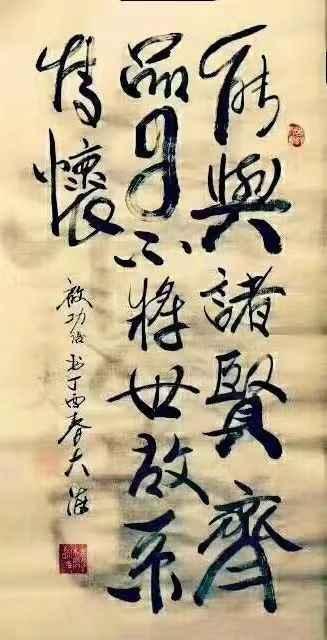 能與諸賢齊
品目不將世故系
情懷
啟功語书丁酉春大